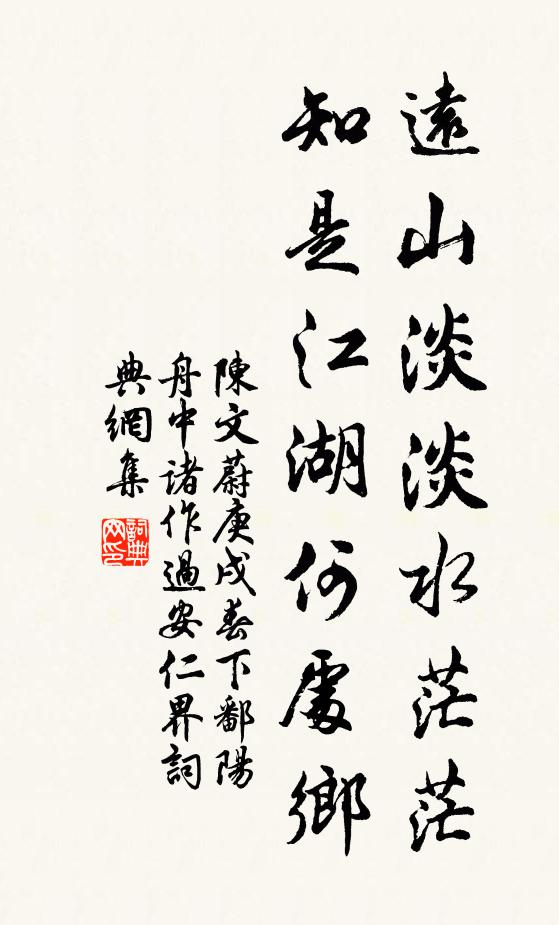 遠山淡淡水茫茫
知是江湖何處鄉
陳文蔚庚戌春下鄱陽
舟中诸作過安仁界詞
典網集
詞典
网印